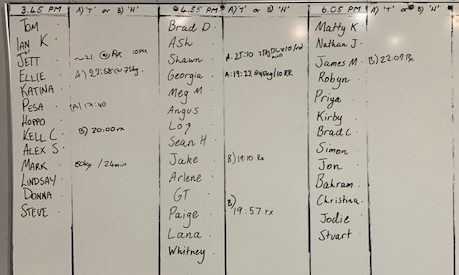 3.45 PM A) 'T' or B) 'H'
TOM
IAN K
JETT ~21 @ Rx
ELLIE A) 22:58 @ 75kg
KATINA
PESA A) 17:40
HOPPO
KELL C B) 20:00 rx
ALEX S
MARK 80kg / 24min
LINDSAY
DONNA
STEVE
4.55 PM A) 'T' or B) 'H'
Brad D
Ash
Shawn A: 25:10
Georgia A: 19:22
Meg M
Angus
Loz
Sean H
Jake B) 19:10 Rx
Arlene
GT
Paige B) 19:57 rx
Lana
Whitney
6.05 PM A) 'T' or B) 'H'
Matty K
Nathan J
James M B) 22:09 Rx
Robyn
Priya
Kirby
Brad C
Simon
Jon
Bahram
Christina
Jodie
Stuart